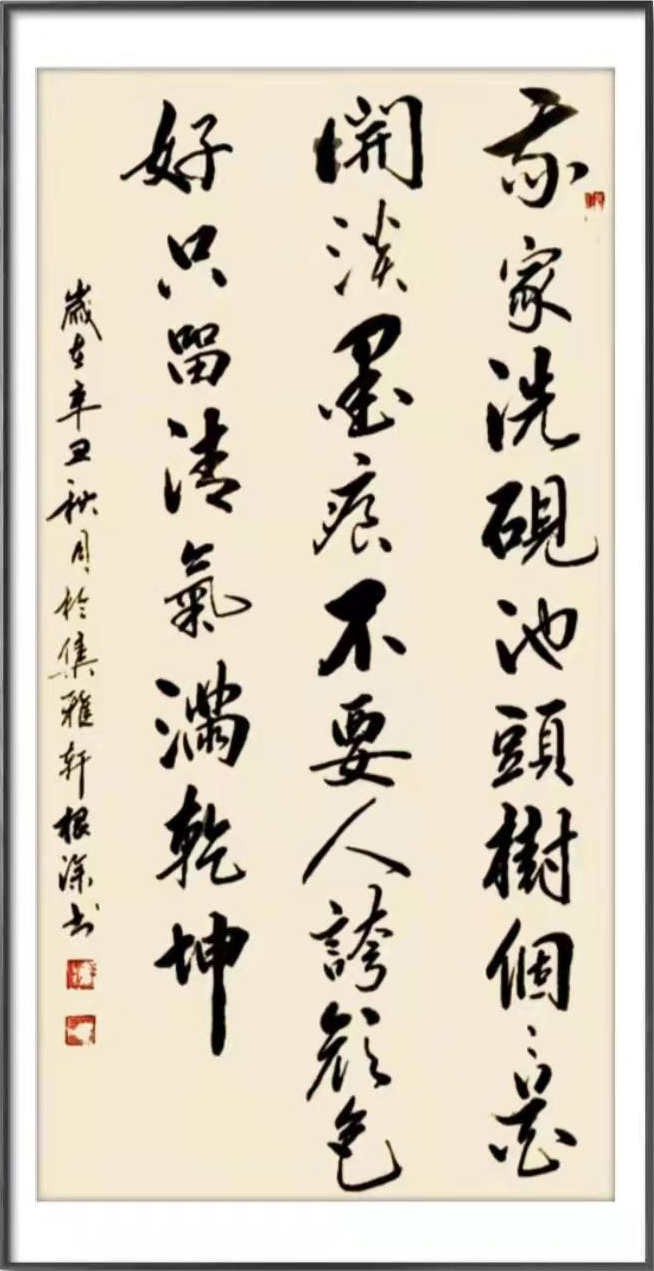 我家洗硯池頭樹個々花
開淡墨痕不要人誇顔色
好只留清氣滿乾坤
歲在辛丑秋月於集雅軒根深书